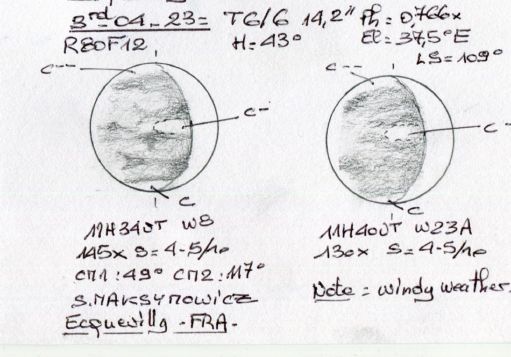 3rd-04-23= TG/6 14,2" Ph: 0,766x
R80F12 H=43° El= 37,5°E
LS=109°
C-- C--
C- C-
C C
11H34UT W8 11H40UT W23A
145x S=4-5/10 130x S=4-5/10
CM1:49° CM2:117°
Note = windy weather.
S.MAKSYMOWICZ
Ecquevilly -FRA-